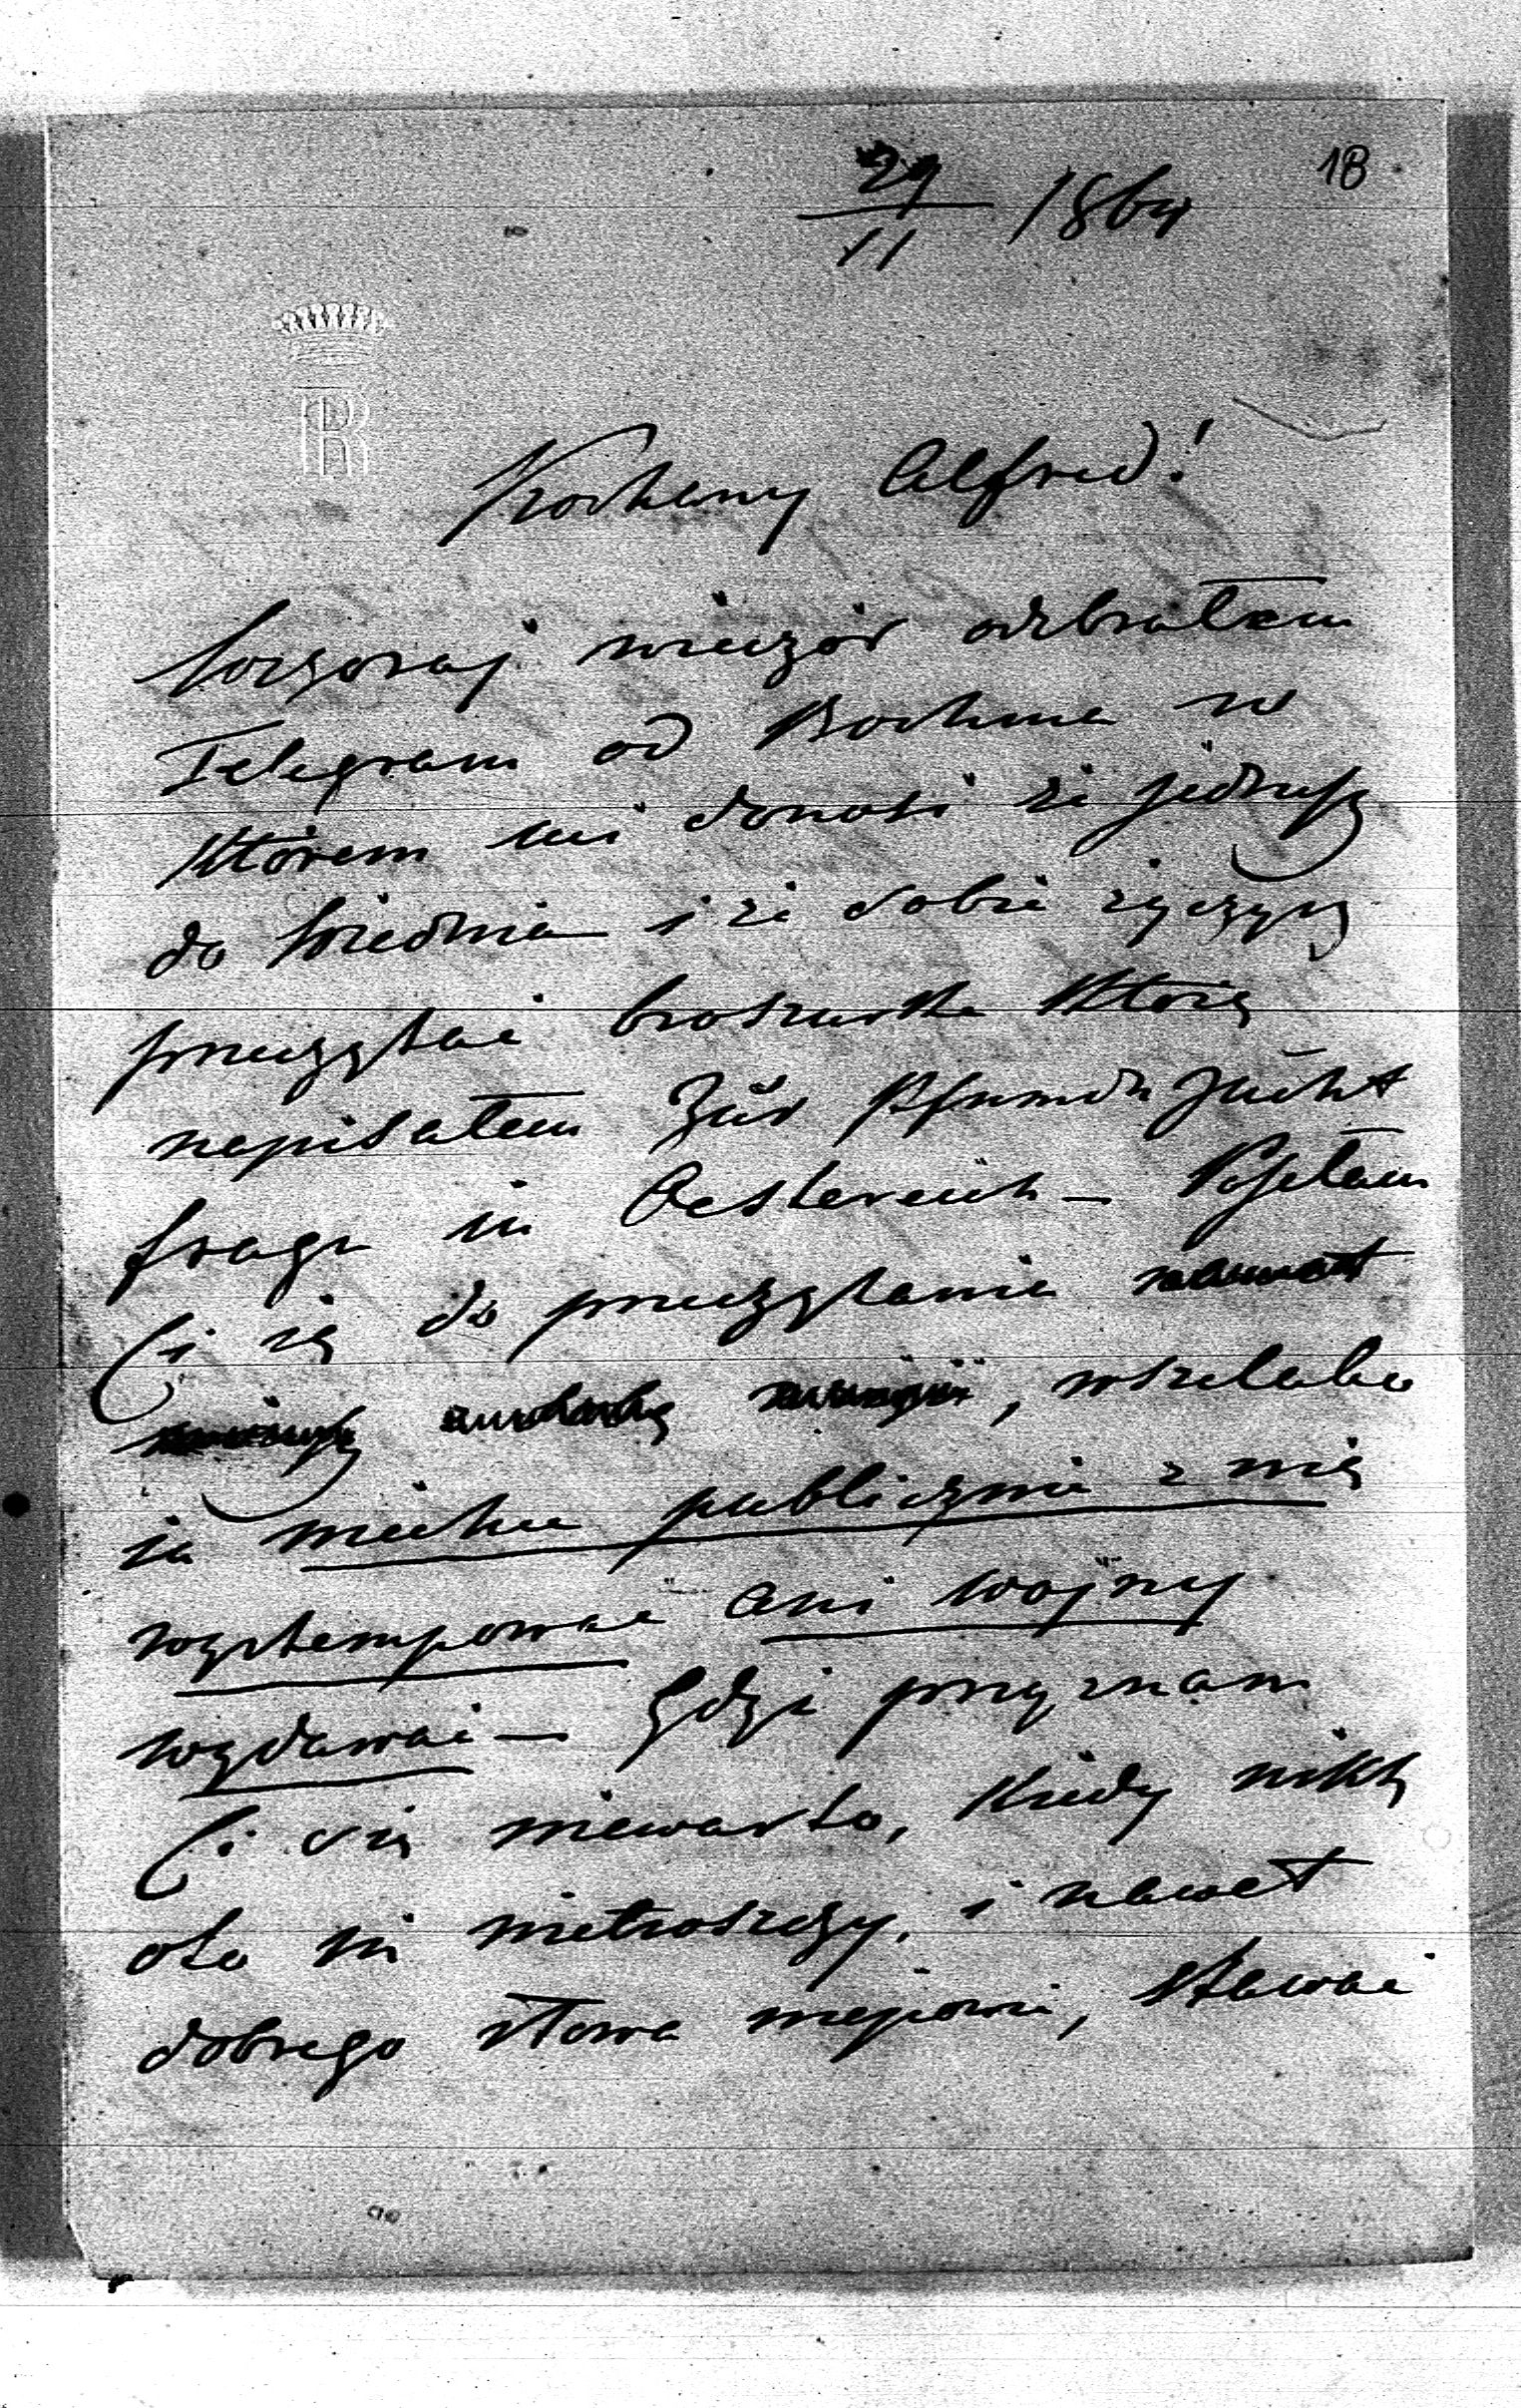 18
29/11 1864
Kochany Alfred!
Wczoraj wieczór odebrałem
Telegram od Bochma w
którem mi donosi że jedzisz
do Wiednia i że sobie życzysz
przeczytać broszurke którą
napisałem Zur Pferdezucht
frage in Oesterreich – Posełam
Ci ią do przeczytania
, wszelako
ia niechce publicznie z nią
wystempować ani wojny
wydawać – Gdzi przyznam
Ci się niewarto, kiedy nikt
oto się nietroszczy, i nawet
dobrego słowa niepowie, stawać